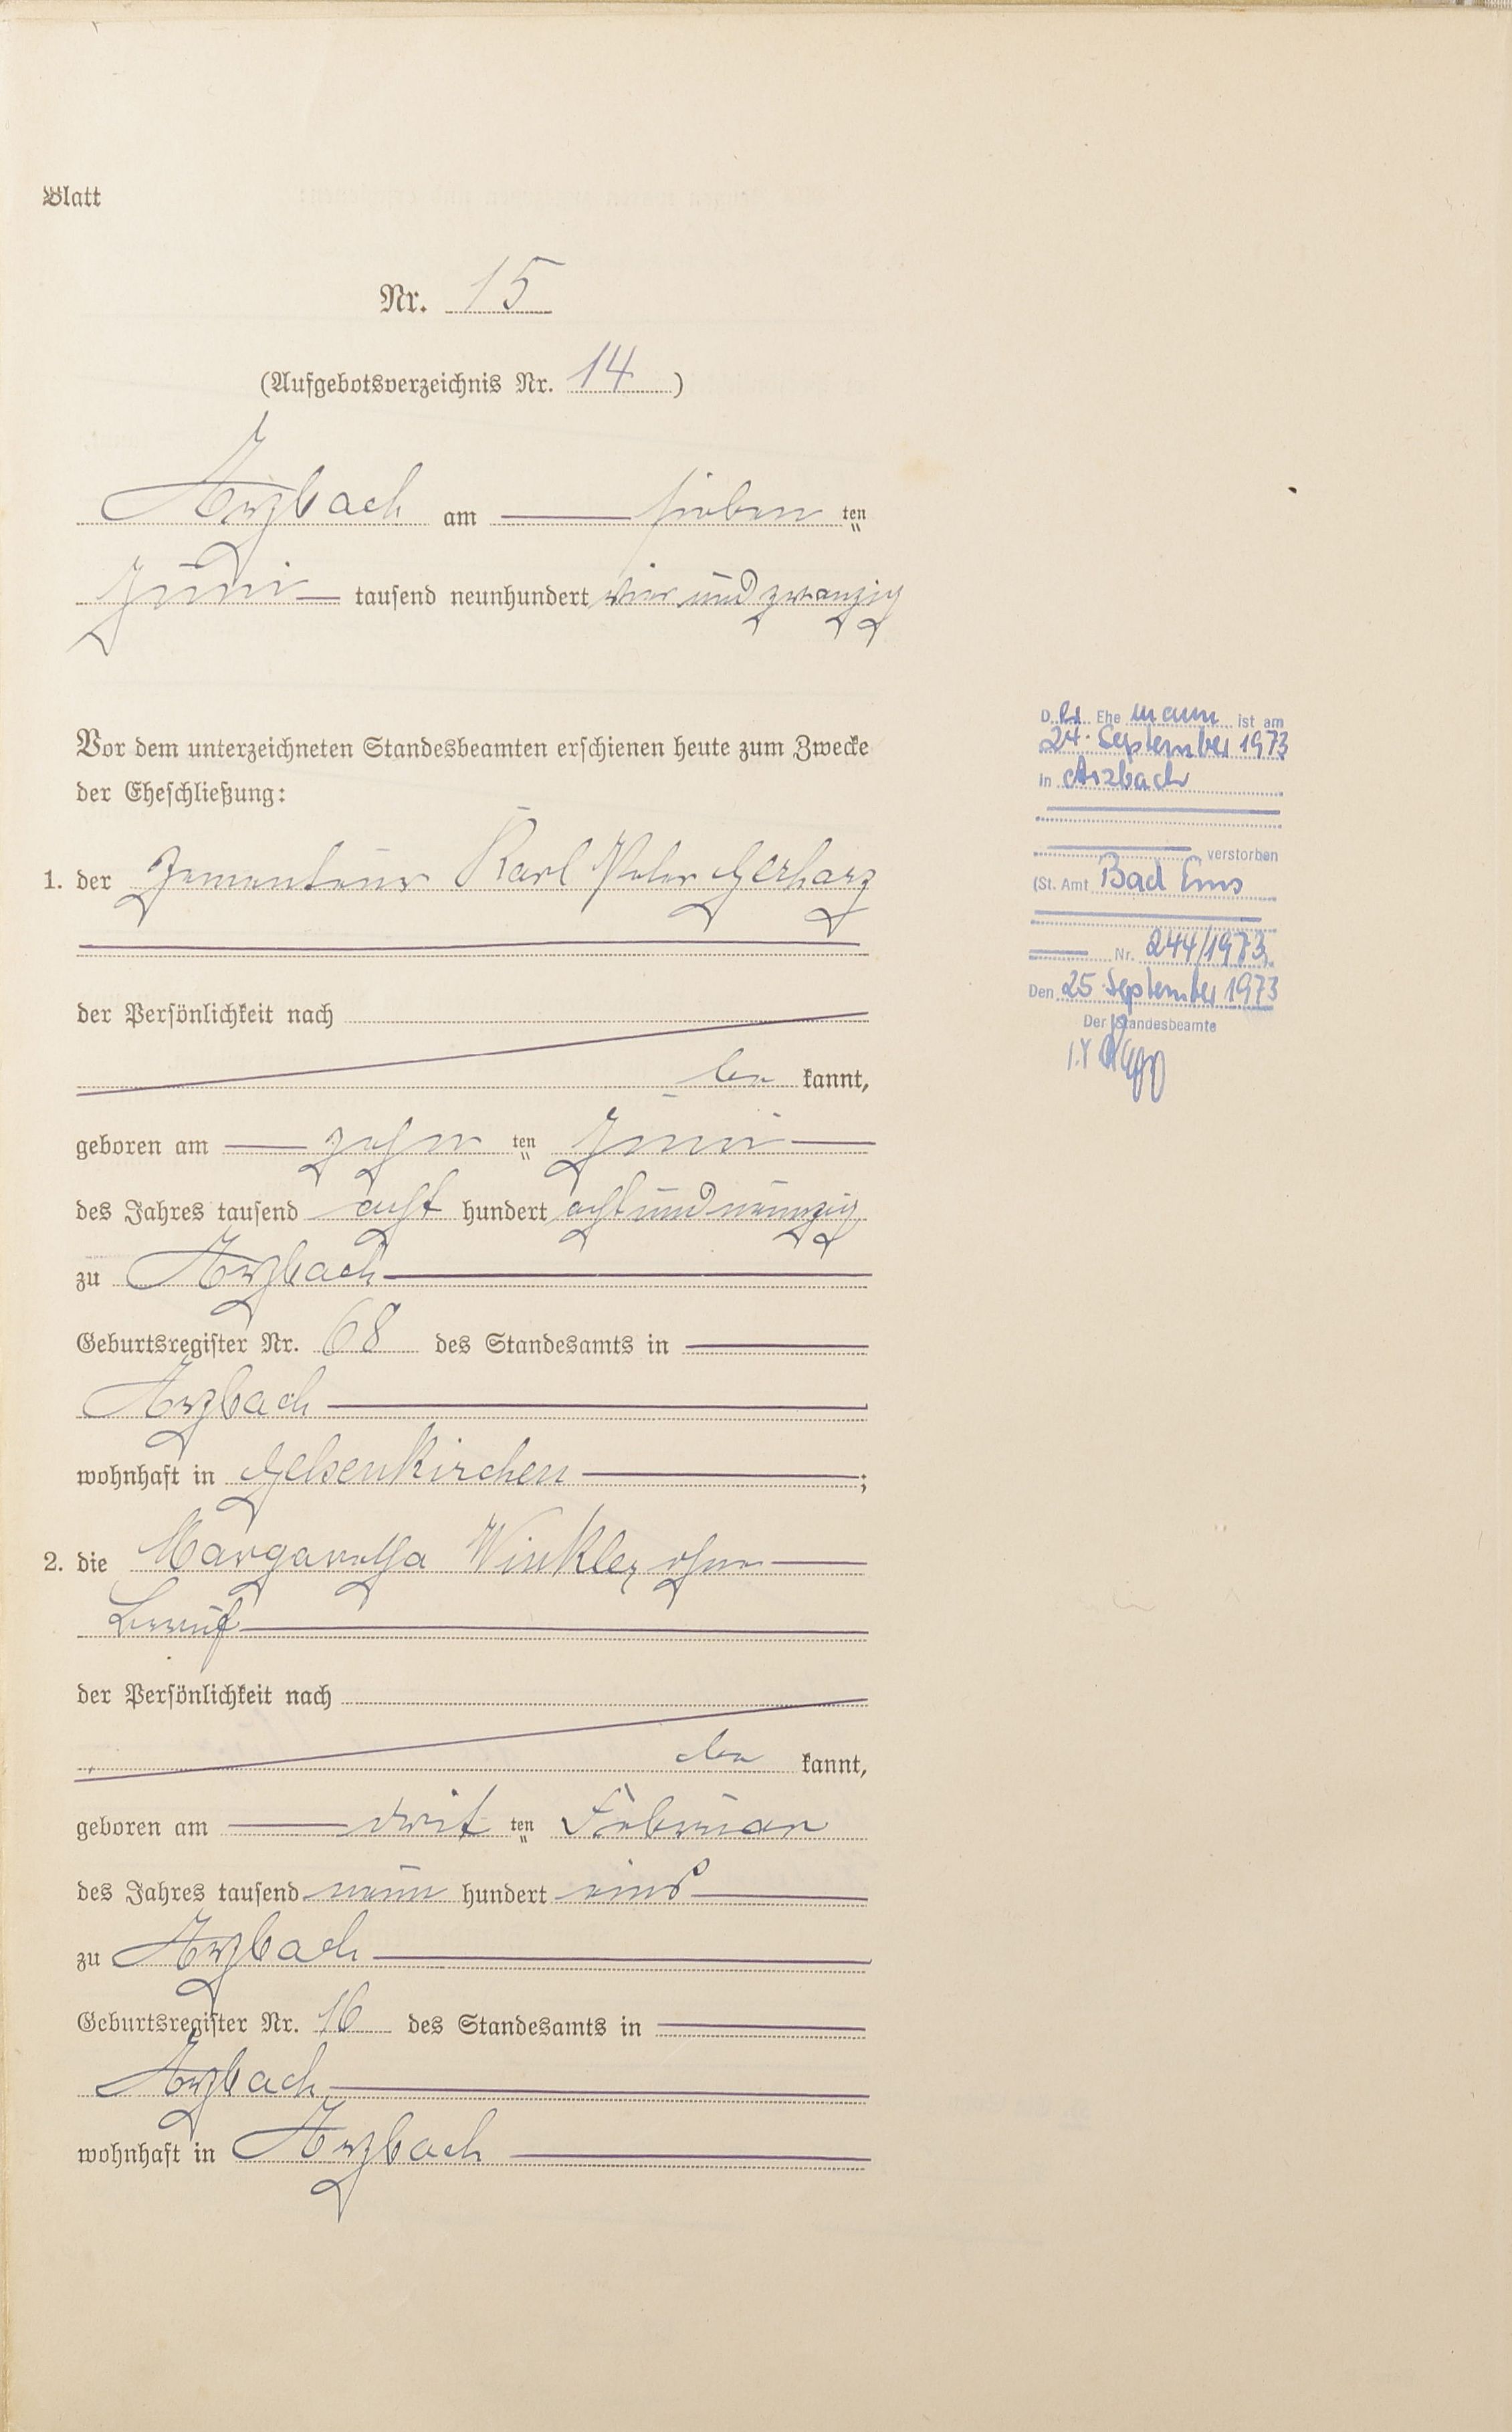 Blatt
Nr. 15
(Aufgebotsverzeichnis Nr. 14)
Arzbach am sieben ten
Juni tausend neunhundert vier und zwanzig
Vor dem unterzeichneten Standesbeamten erschienen heute zum Zwecke
der Eheschließung:
1. der Zementeur Karl Peter Gerharz
der Persönlichkeit nach
be kannt,
geboren am zehn ten Juni
des Jahres tausend acht hundert acht und neunzig
zu Arzbach
Geburtsregister Nr. 68 des Standesamts in
Arzbach
wohnhaft in Gelsenkirchen;
2. die Margaretha Winkler, ohne
Beruf
der Persönlichkeit nach
be kannt,
geboren am drit ten Februar
des Jahres tausend neun hundert eins
zu Arzbach
Geburtsregister Nr. 16 des Standesamts in
Arzbach
wohnhaft in Arzbach
D er Ehe mann ist am
24. September 1973
in Arzbach
verstorben
(St. Amt Bad Ems
Nr. 244/1973.
Den 25. September 1973
Der Standesbeamte
I.V.